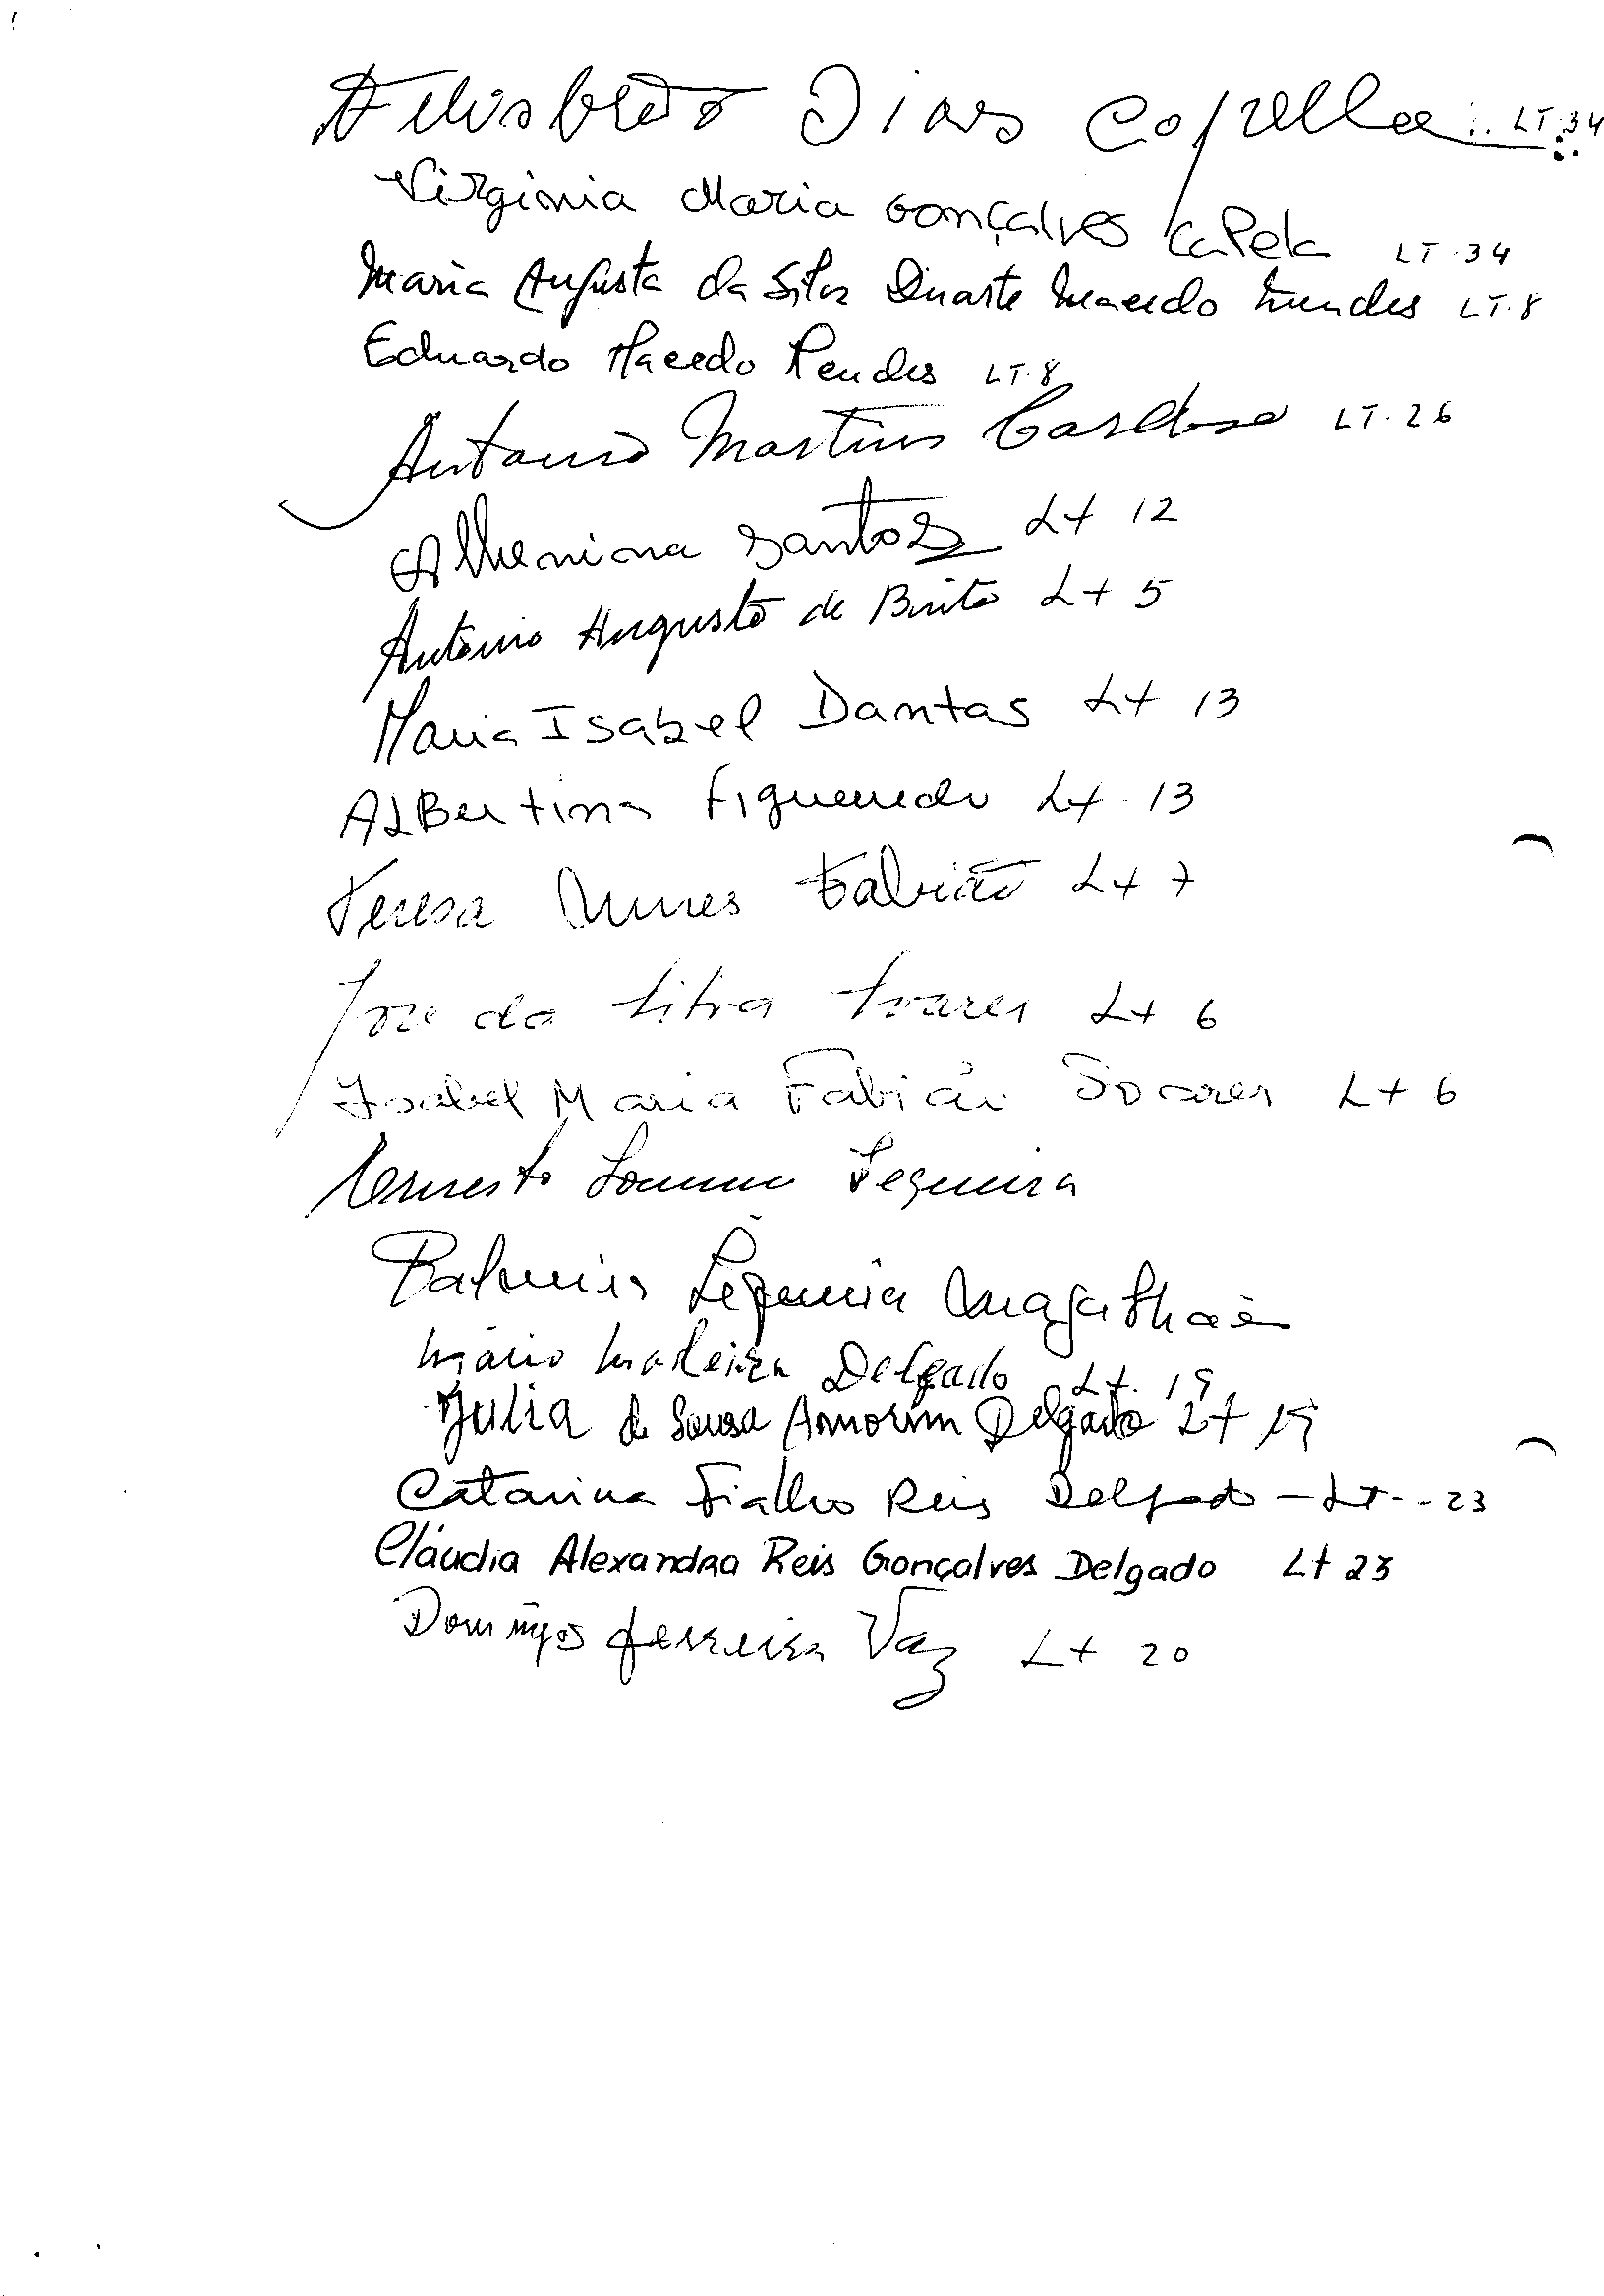 Felisberto Dias Capella LT.34
Virginia Maria Gonçalves Capela LT.34
Maria Augusta da Silva Duarte Macedo Mendes LT.8
Eduardo Macedo Mendes LT.8
Antonio Martins Cardoso LT.26
Santos Lt 12
Antonio Augusto de Brito Lt 5
Maria Isabel Dantas Lt 13
ALBertina Figueiredo Lt 13
Teresa Nunes Fabião Lt 7
José da Silva Soares Lt 6
Isabel Maria Fabião Soares Lt 6
Ernesto Sequeira
Palmira Sequeira Magalhães
Mário Madeira Delgado Lt. 19
Julia de Sousa Amorim Delgado Lt 19
Catarina Fialho Reis Delgado - LT - 23
Cláudia Alexandra Reis Gonçalves Delgado Lt 23
Domingos Ferreira Vaz Lt 20